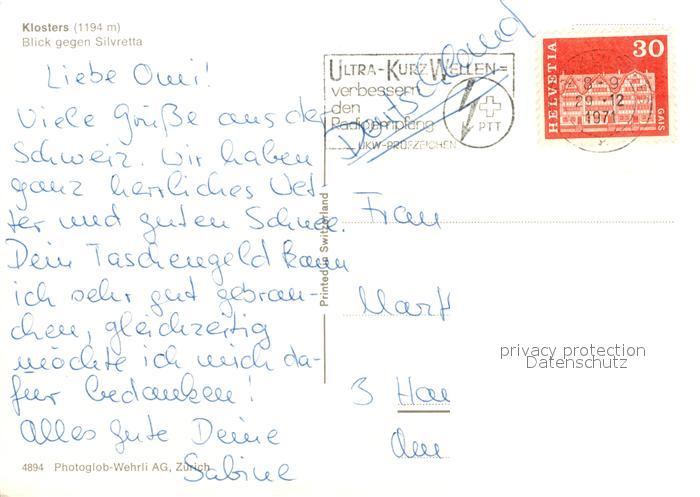 Klosters (1194 m)
Blick gegen Silvretta
Liebe Omi!
Viele Grüße aus der
Schweiz. Wir haben
ganz herrliches Wet-
ter und guten Schnee.
Dein Taschengeld kann
ich sehr gut gebrau-
chen, gleichzeitig
möchte ich mich da-
für bedanken!
Alles Gute Deine
Sabine
4894 Photoglob-Wehrli AG, Zürich
Printed in Switzerland
ULTRA-KURZ WELLEN=
verbessern
den
Radioempfang
UKW-PRÜFZEICHEN
PTT
Deutschland
HELVETIA
30
GAIS
8-9
29.-12
1971
Frau
Mart
3 Han
Am
privacy protection
Datenschutz